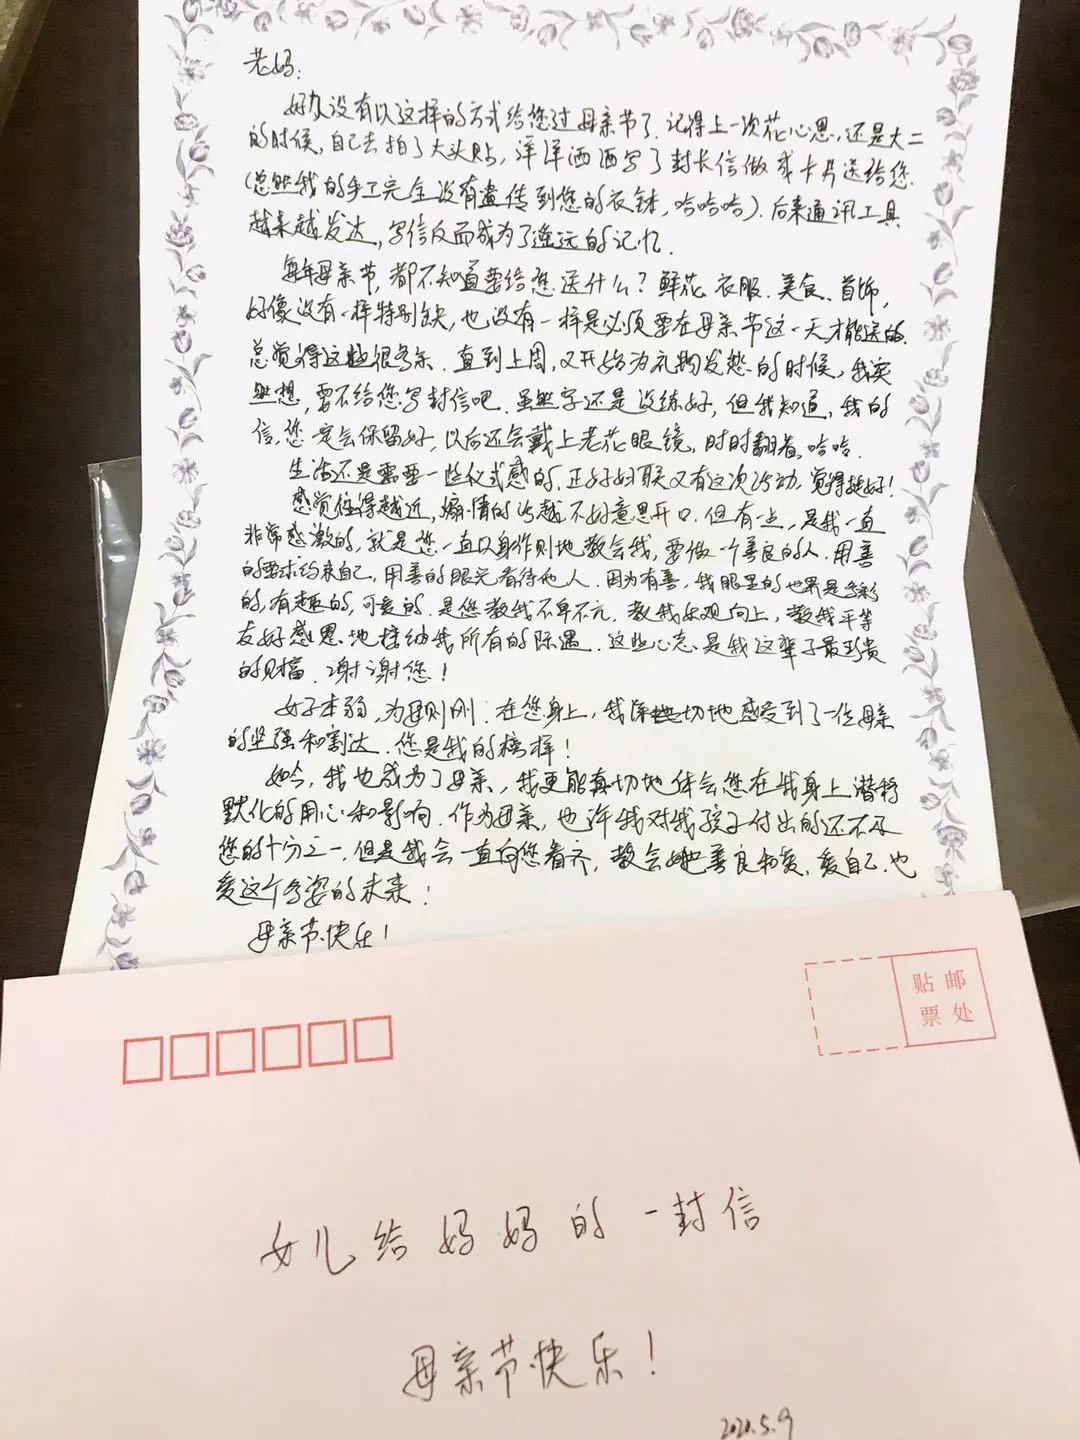 老妈:
好久没有以这样的方式给您过母亲节了.记得上一次花心思,还是大二
的时候,自己去拍了大头贴,洋洋洒洒写了封长信做成卡片送给您
(忽然我的手工完全没有遗传到您的衣钵,哈哈哈).后来通讯工具
越来越发达,写信反而成为了遥远的记忆.
每年母亲节,都不知道要给您送什么?鲜花、衣服、美食、首饰,
好像没有一样特别缺,也没有一样是必须要在母亲节这一天才能送的.
总觉得这些很多余.直到上周,又开始为礼物发愁的时候,我突
然想,要不给您写封信吧.虽然字还是没练好,但我知道,我的
信,您一定会保留好,以后还会戴上老花眼镜,时时翻看,哈哈.
生活还是需要一些仪式感的.正好妇联又有这次活动,觉得挺好!
感觉住得越近,煽情的话越不好意思开口.但有一点,是我一直
非常感激的,就是您一直以身作则地教会我,要做一个善良的人.用善
的要求约束自己,用善的眼光看待他人.因为有善,我眼里的世界是多彩
的,有趣的,可爱的.是您教我不卑不亢.教我乐观向上,教我平等
友好感恩地接纳我所有的际遇.这些心态是我这辈子最珍贵
的财富.谢谢您!
女子本弱,为母则刚.在您身上,我深切地感受到了一位母亲
的坚强和豁达.您是我的榜样!
如今,我也成为了母亲,我更能真切地体会您在我身上潜移
默化的用心和影响.作为母亲,也许我对我孩子付出的还不及
您的十分之一.但是我会一直向您看齐,教会她善良和爱.爱自己.也
爱这个多姿的未来!
母亲节快乐!
贴邮
票处
女儿给妈妈的一封信
母亲节快乐!
2020.5.9